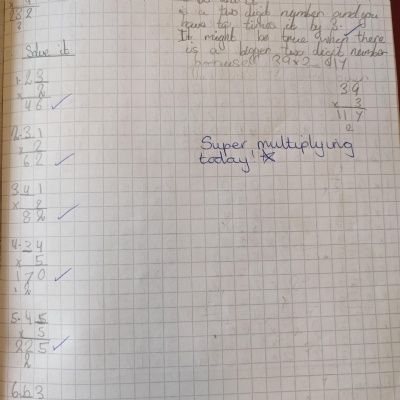 282
Solve it
1. 23
x 2
46
2. 31
x 2
62
3. 41
x 2
82
4. 24
x 5
170
1 2
5. 45
x 5
225
2
6. 63
is a two digit number and you
have to times it by 3.
It might be true when there
is a bigger two digit number
39x2
39
x 3
117
2
Super multiplying
today!